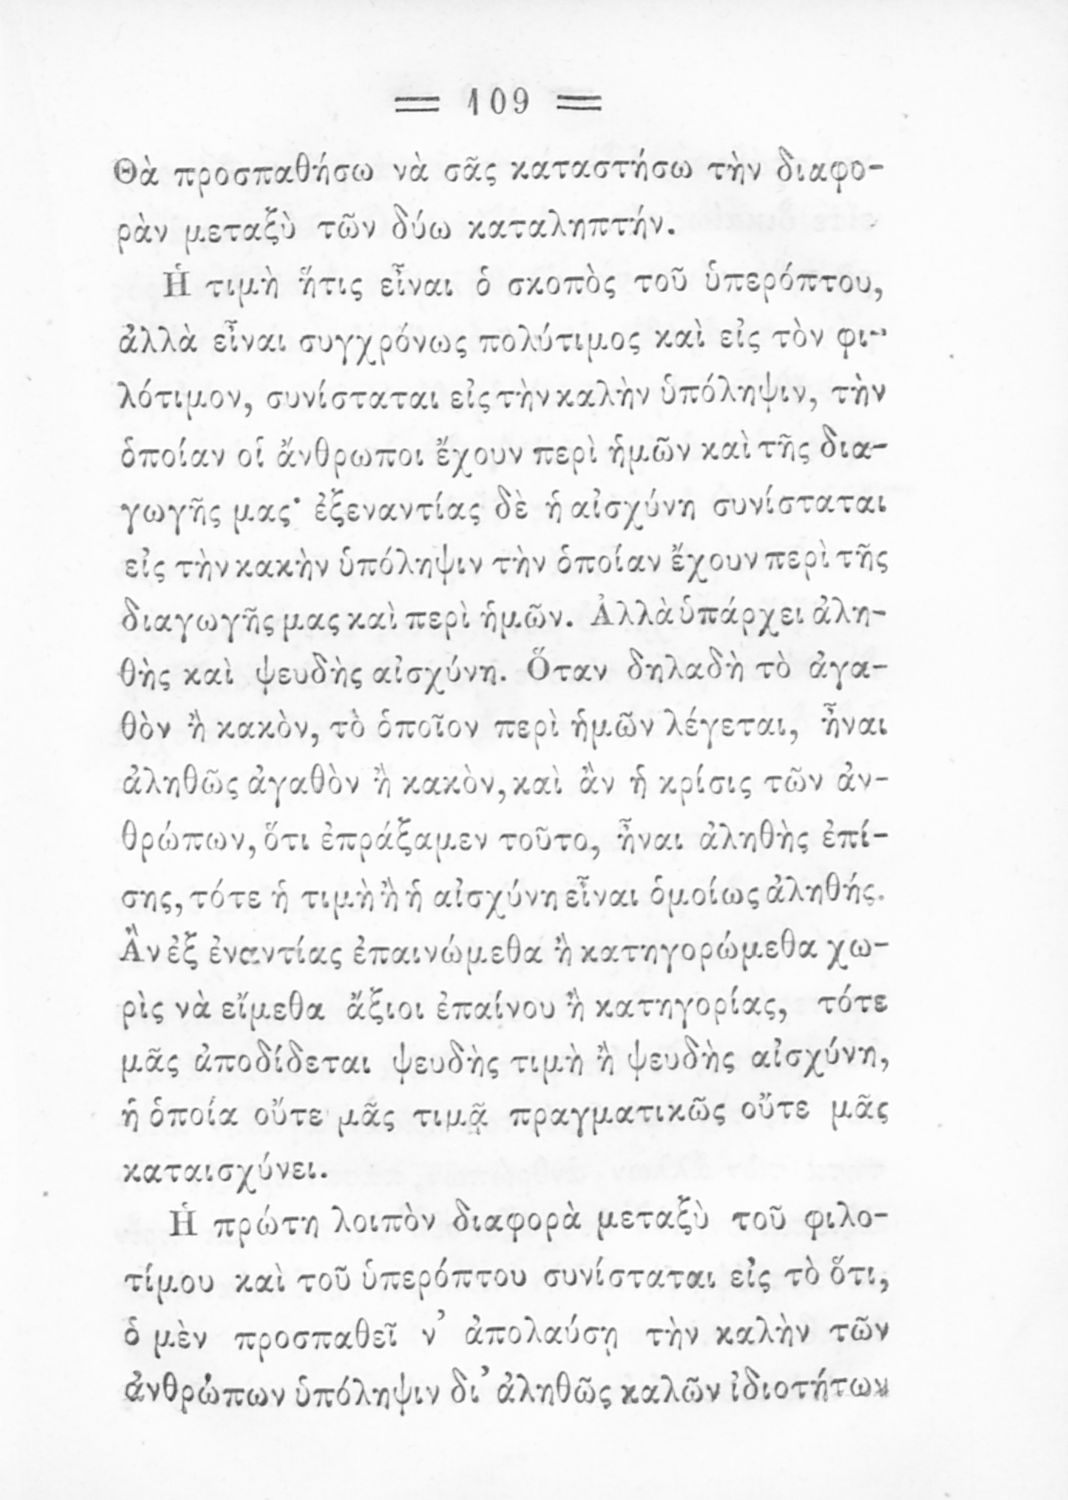 = 109 =
Θὰ προσπαθήσω νὰ σᾶς καταστήσω τὴν διαφο-
ρὰν μεταξὺ τῶν δύω καταληπτήν.
Ἡ τιμὴ ἥτις εἶναι ὁ σκοπὸς τοῦ ὑπερόπτου,
ἀλλὰ εἶναι συγχρόνως πολύτιμος καὶ εἰς τὸν φι-
λότιμον, συνίσταται εἰς τὴν καλὴν ὑπόληψιν, τὴν
ὁποίαν οἱ ἄνθρωποι ἔχουν περὶ ἡμῶν καὶ τῆς δια-
γωγῆς μας· ἐξεναντίας δὲ ἡ αἰσχύνη συνίσταται
εἰς τὴν κακὴν ὑπόληψιν τὴν ὁποίαν ἔχουν περὶ τῆς
διαγωγῆς μας καὶ περὶ ἡμῶν. Ἀλλὰ ὑπάρχει ἀλη-
θὴς καὶ ψευδὴς αἰσχύνη. Ὅταν δηλαδὴ τὸ ἀγα-
θὸν ἢ κακὸν, τὸ ὁποῖον περὶ ἡμῶν λέγεται, ἦναι
ἀληθῶς ἀγαθὸν ἢ κακὸν, καὶ ἂν ἡ κρίσις τῶν ἀν-
θρώπων, ὅτι ἐπράξαμεν τοῦτο, ἦναι ἀληθὴς ἐπί-
σης, τότε ἡ τιμὴ ἢ ἡ αἰσχύνη εἶναι ὁμοίως ἀληθής.
Ἂν ἐξ ἐναντίας ἐπαινώμεθα ἢ κατηγορώμεθα χω-
ρὶς νὰ εἴμεθα ἄξιοι ἐπαίνου ἢ κατηγορίας, τότε
μᾶς ἀποδίδεται ψευδὴς τιμὴ ἢ ψευδὴς αἰσχύνη,
ἡ ὁποία οὔτε μᾶς τιμᾷ πραγματικῶς οὔτε μᾶς
καταισχύνει.
Ἡ πρώτη λοιπὸν διαφορὰ μεταξὺ τοῦ φιλο-
τίμου καὶ τοῦ ὑπερόπτου συνίσταται εἰς τὸ ὅτι,
ὁ μὲν προσπαθεῖ ν᾽ ἀπολαύσῃ τὴν καλὴν τῶν
ἀνθρώπων ὑπόληψιν δι᾽ ἀληθῶς καλῶν ἰδιοτήτων